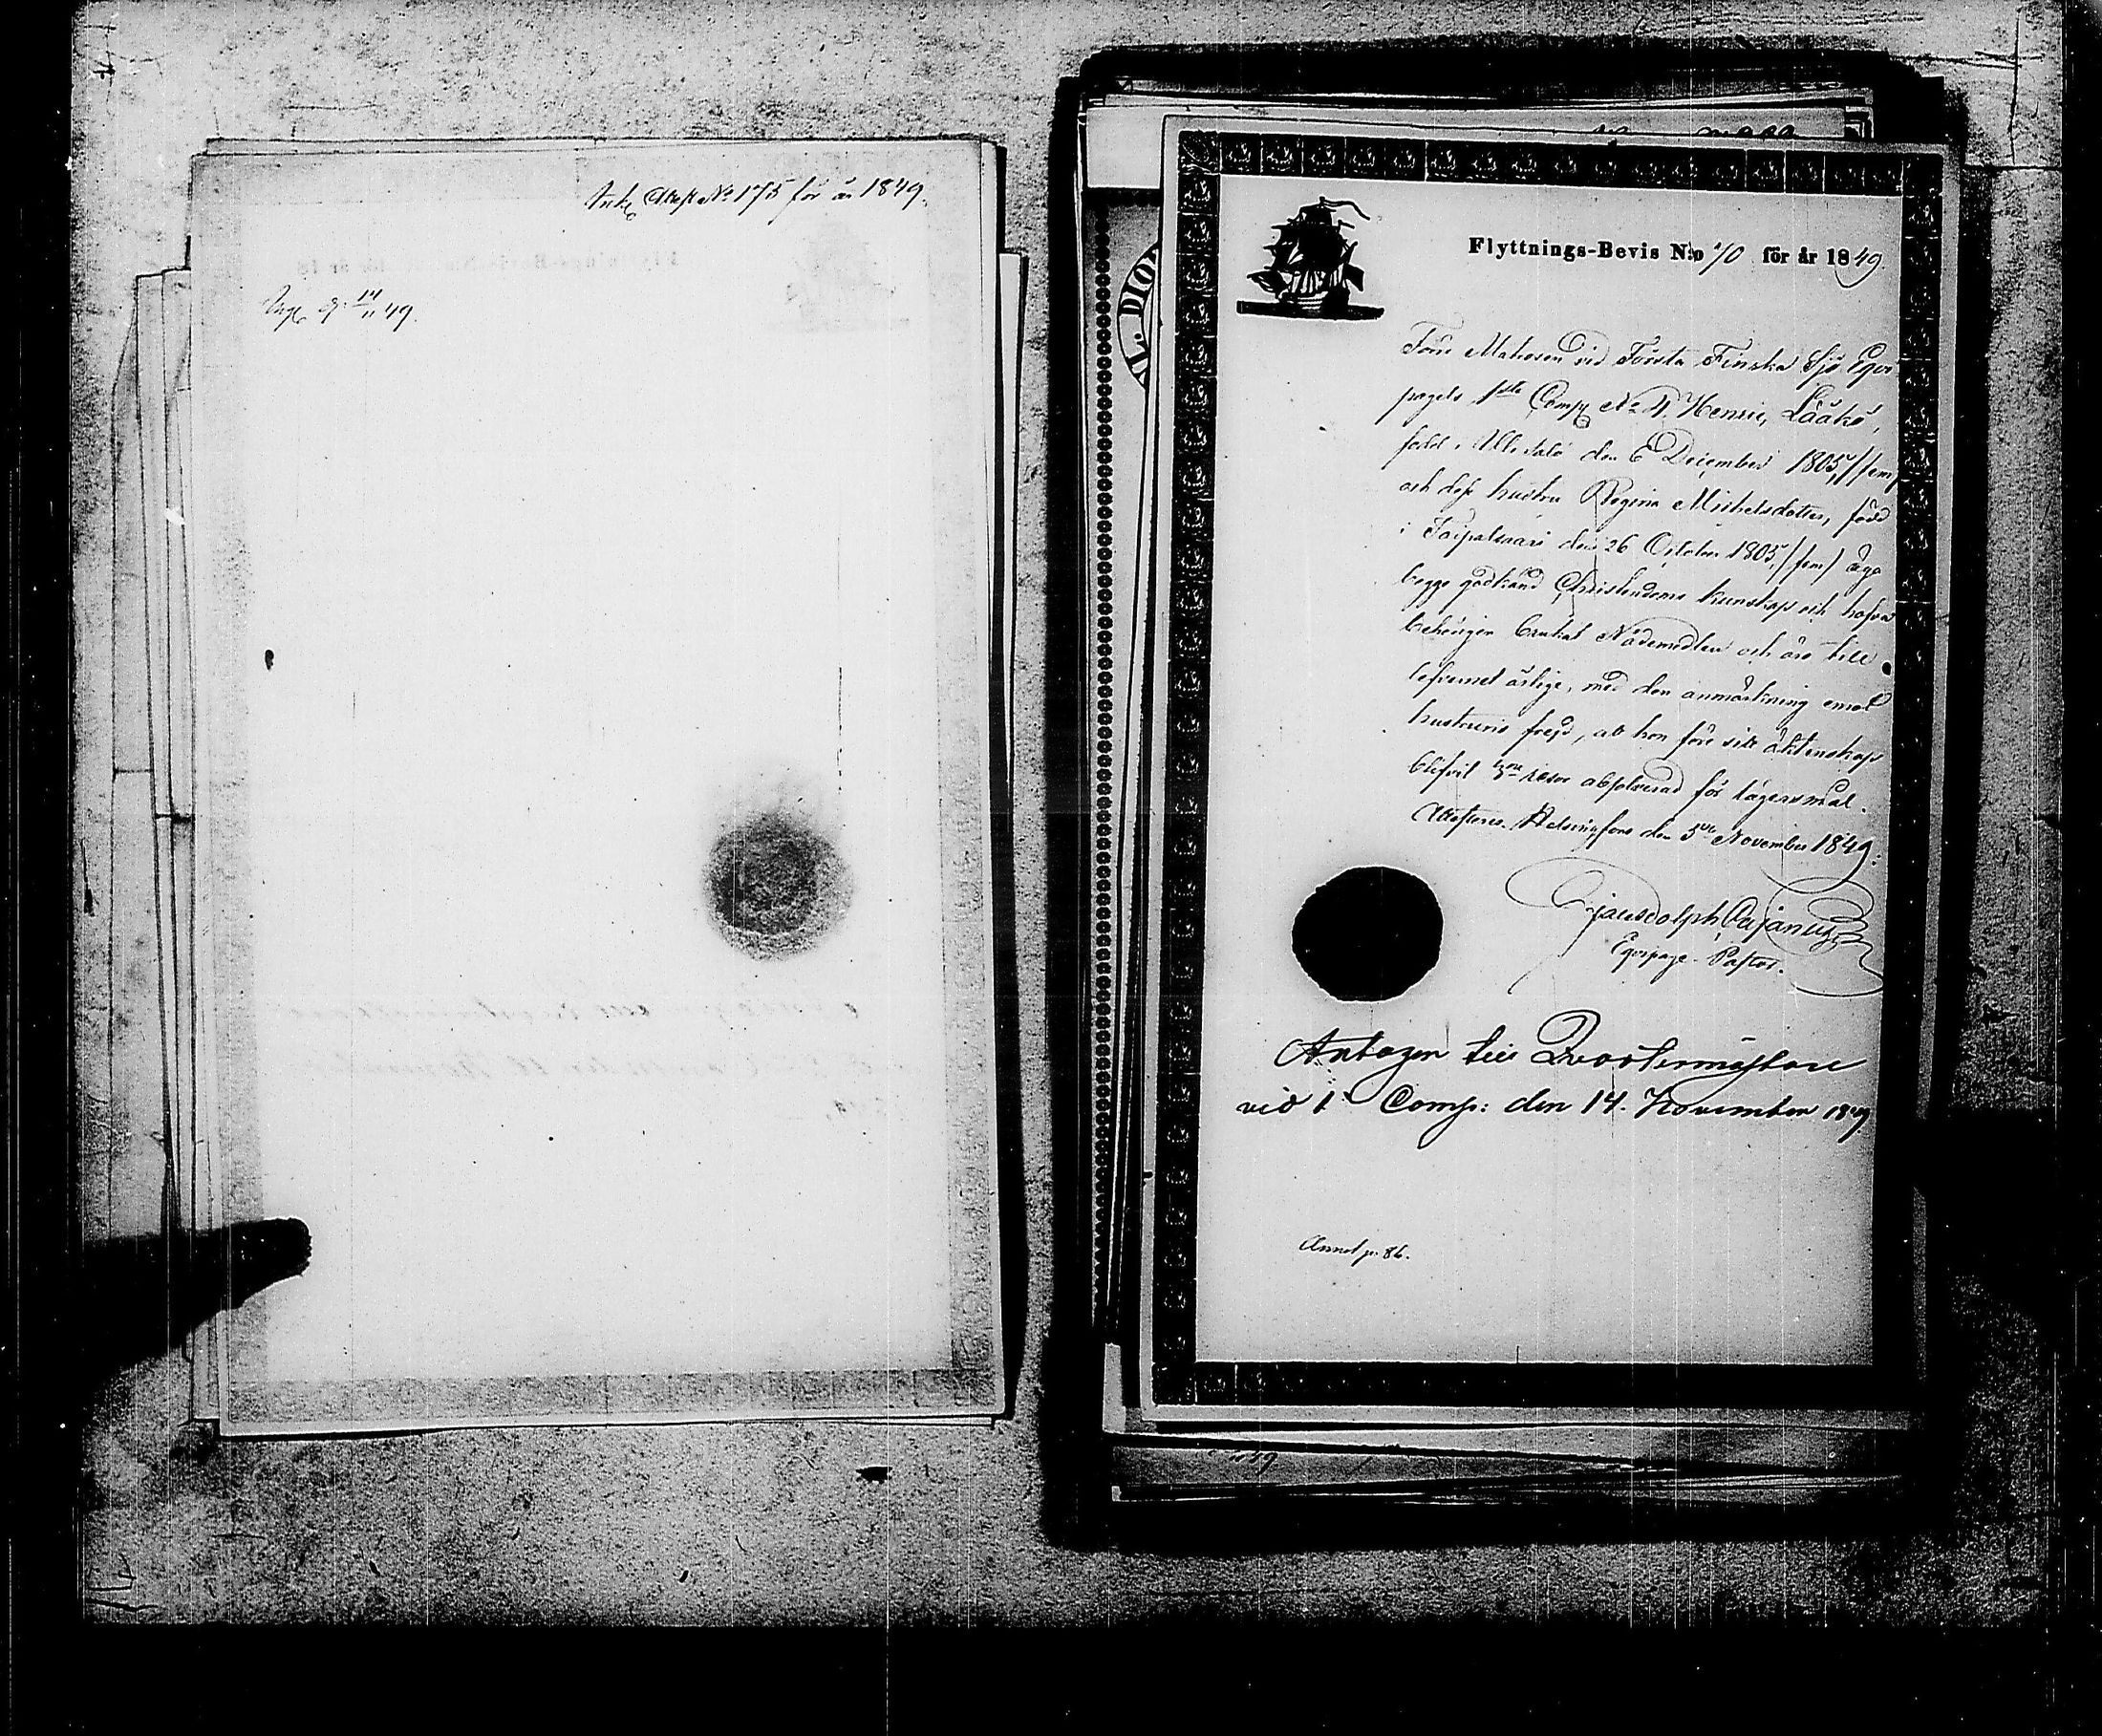 Ank. Attest No 175 för år 1849.
Ing. d. 14/11 49.
Flyttnings-Bevis N:o 70 för år 1849.
Förre Matrosen vid Första Finska Sjö Equi
pagets 1sta Comp. No 4, Henric Lääkö,
född i den 6 December 1805, /fem/
och dess hustru Regina Michelsdotter, född
i Taipalsaari den 26 October 1805, /fem/ äga
begge godkänd Christendoms kunskap och hafva
behörigen brukat Nådemedlen och äro till
lefvernet ärlige, med den anmärkning emot
hustruns frejd, att hon före sitt äktenskap
blifvit 3ne resor absolverad för lägersmål.
Attesteras. Helsingfors den 5te November 1849.
Cajanus
Equipage-Pastor.
Antagen till Qvartermästare
vid 1. Comp: den 14. November 1849
Annot. p. 86.